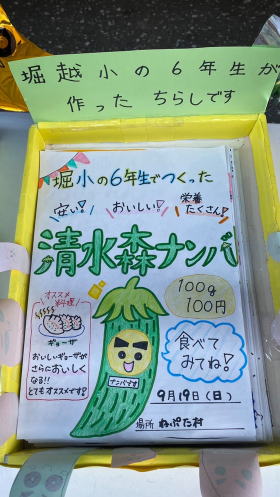 堀越小の6年生が
作った ちらしです
堀小の6年生でつくった
安い!
おいしい!
栄養
たくさん!
清水森ナンバ
100g
100円
オススメ
料理!
ギョーザ
おいしいギョーザが
さらにおいしく
なる!!
とてもオススメです!
ナンバです
食べて
みてね!
9月19日(日)
場所 ねぷた村